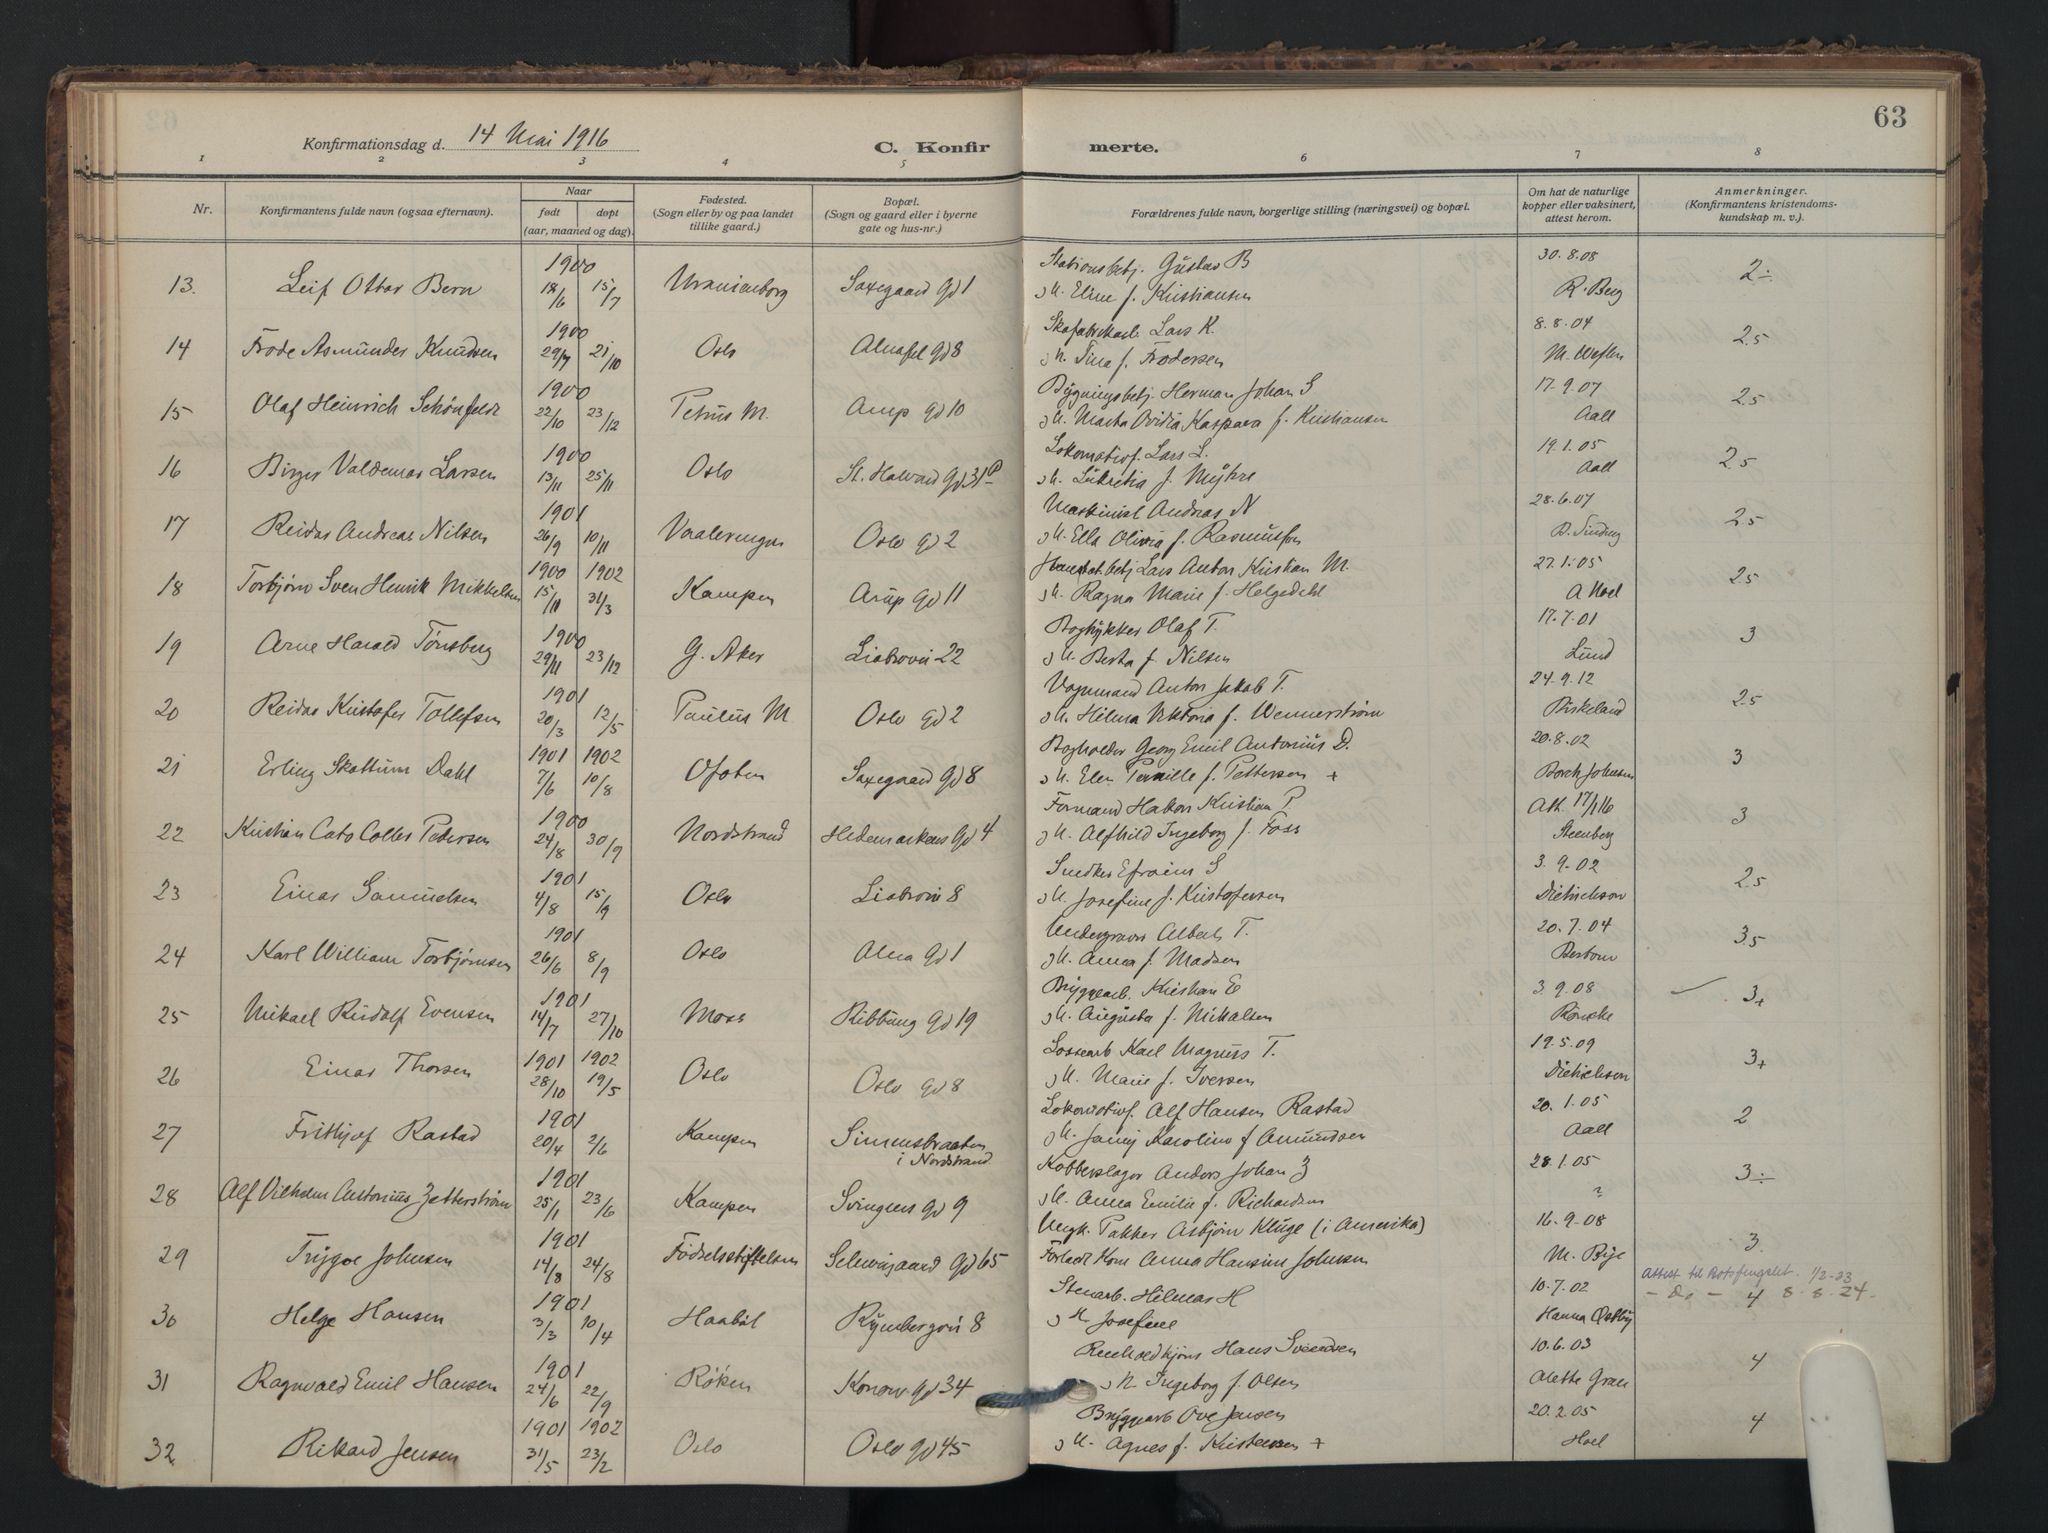 63
Konfirmationsdag d. 14 Mai 1916
C. Konfirmerte.
1 2 3 4 5 6 7 8
Nr.
Konfirmantens fulde navn (ogsaa efternavn).
Naar
født døpt
(aar, maaned og dag).
Fødested.
(Sogn eller by og paa landet
tillike gaard.)
Bopæl.
(Sogn og gaard eller i byerne
gate og hus-nr.)
Forældrenes fulde navn, borgerlige stilling (næringsvei) og bopæl.
Om hat de naturlige
kopper eller vaksinert,
attest herom.
Anmerkninger.
(Konfirmantens kristendoms-
kundskap m. v.).
13. Leif Ottar Bern 1900 18/6 15/7 Uranienborg Saxegaard Gd 1 Stationsbetj. Gustav B 30.8.08 2÷
o h. Eline f. Kristiansen R. Berg
14 Frode Asmunder Knudsen 1900 29/7 21/10 Oslo Alnafet Gd 8 Skofabrikarb. Lars K. 8.8.04 2.5
o h. Tina f. Frodersen
15 Olaf Heinrich Schönfeldt 1900 22/10 23/12 Petrus M. Arup Gd 10 Bygningsbetj. Herman Johan S 17.9.07 2.5
o h. Marta Ovidia Kaspara f. Kristiansen Aall
16 Birger Valdemar Larsen 1900 13/11 25/11 Oslo St. Halvard Gd 31 P Lokomotivf. Lars L. 19.1.05 2.5
o h. Lukretia f. Myhre Aall
17 Reidar Andreas Nilsen 1901 26/9 10/11 Vaalerengen Oslo Gd 2 Maskinist Andreas N 28.6.07 2.5
o h. Ella Olivia f. Rasmussen
18 Torbjørn Sven Henrik Mikkelsen 1900 1902 15/11 31/3 Kampen Arup Gd 11 Lars Anton Kristian M. 27.1.05 2.5
o h. Ragna Marie f. Helgedahl A Moel
19 Arne Harald Tønsberg 1900 29/11 23/12 G. Aker Liabrovei 22 Bogtykker Olaf T. 17.7.01 3
o h. Berta f. Nilsen Lund
20 Reidar Kristofer Tollefsen 1901 20/3 12/5 Paulus M Oslo Gd 2 Vognmand Anton Jakob T. 24.9.12 2.5
o h. Hilma Viktoria f. Wennerstrøm Birkeland
21 Erling Skattum Dahl 1901 1902 7/6 10/8 Ofoten Saxegaard Gd 8 Bogholder Georg Emil Antonius D. 20.8.02 3
o h. Elen Pernille f. Pettersen + Borch Johnsen
22 Kristian Cato Collet Pedersen 1900 24/8 30/9 Nordstrand Hedemarkens Gd 4 Formand Hakon Kristian P Att. 17/1 16 3
o h. Alfhild Ingeborg f. Foss Steenberg
23 Einar Samuelsen 1901 4/8 15/9 Oslo Liabrovei 8 Snedker Efraim S 3.9.02 2.5
o h. Josefine f. Kristofersen Dietrichson
24 Karl William Torbjørnsen 1901 26/6 8/9 Oslo Alna Gd 1 Albert T. 20.7.04 3.5
o h. Anna f. Madsen
25 Mikael Rudolf Evensen 1901 14/7 27/10 Moss Ribbung Gd 19 Bryggearb. Kristian E 3.9.08 3+
o h. Augusta f. Mikalsen Röncke
26 Einar Thorsen 1901 1902 28/10 19/5 Oslo Oslo Gd 8 Lossearb Karl Magnus T. 19.5.09 3+
o h. Marie f. Iversen Dietrichson
27 Frithjof Rastad 1901 20/4 2/6 Kampen Simensbraaten i Nordstrand Lokomotivf. Alf Hansen Rastad 20.1.05 2
o h. Jenny Karoline f Amundsen Aall
28 Alf Vilhelm Antonius Zetterstrøm 1901 25/1 23/6 Kampen Svingens Gd 9 Kobberslager Anders Johan Z 28.1.05 3÷
o h. Anna Emilie f. Richardsen ?
29 Trygve Johnsen 1901 14/8 24/8 Fødselsstiftelsen Schweigaard Gd 65 Ungk. Pakker Asbjørn Kluge (i Amerika) 16.9.08 3.
Anna Hansine Johnsen M. Bye
Attest til Botsfengslet. 1/2-23
30 Helge Hansen 1901 3/3 10/4 Haabøl Rymbergvei 8 Stenarb. Hilmar H 10.7.02 - Do - 4 8.8.24.
o h Josefine Hanna Østby
31 Ragnvald Emil Hansen 1901 24/6 22/9 Røken Konow Gd 34 Renholdkjører Hans Svendsen 10.6.03 4
o h. Ingeborg f. Olsen Alette Grau
32 Rikard Jensen 1901 1902 31/5 23/2 Oslo Oslo Gd 45 Bryggearb Ove Jensen 20.2.05 4
o h. Agnes f. Kristensen + Hoel